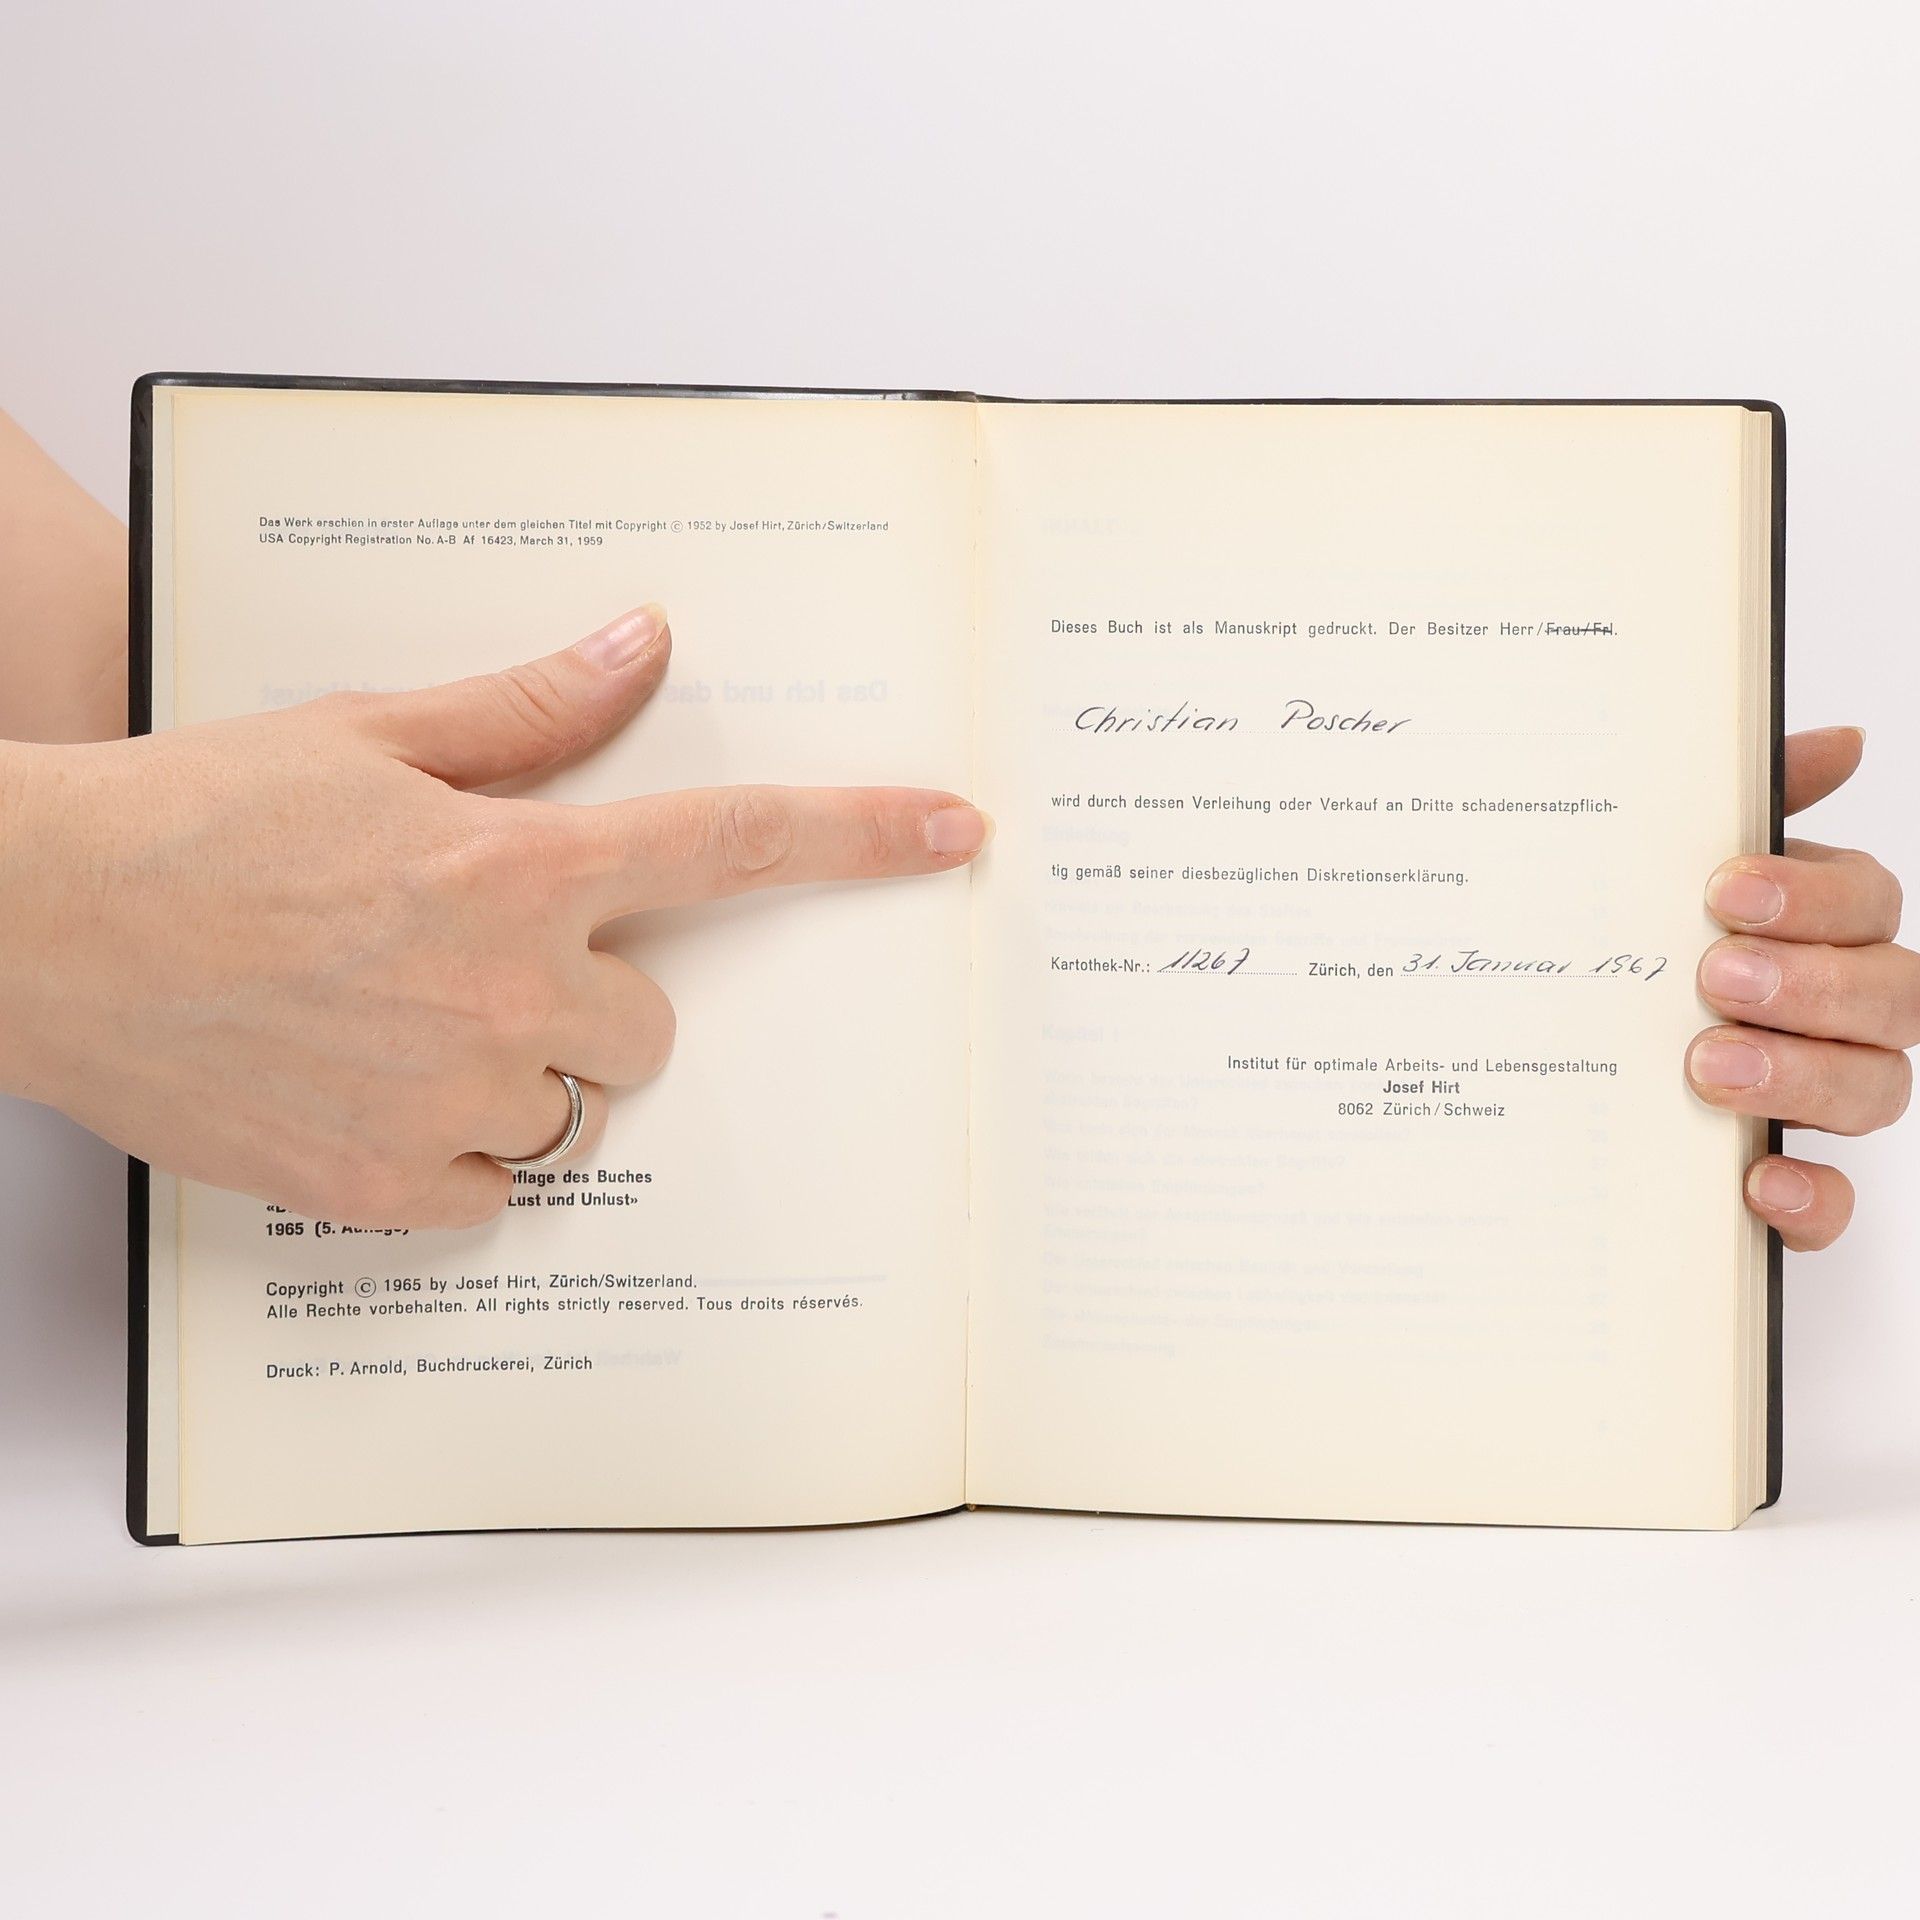 Das Werk erschien in erster Auflage unter dem gleichen Titel mit Copyright © 1952 by Josef Hirt, Zürich/Switzerland
USA Copyright Registration No. A-B Af 16423, March 31, 1959
des Buches
Lust und Unlust»
1965 (5.
Copyright © 1965 by Josef Hirt, Zürich/Switzerland.
Alle Rechte vorbehalten. All rights strictly reserved. Tous droits réservés.
Druck: P. Arnold, Buchdruckerei, Zürich
Dieses Buch ist als Manuskript gedruckt. Der Besitzer Herr/Frau/Frl.
Christian Poscher
wird durch dessen Verleihung oder Verkauf an Dritte schadenersatzpflich-
tig gemäß seiner diesbezüglichen Diskretionserklärung.
Kartothek-Nr.: 11267 Zürich, den 31. Januar 1967
Institut für optimale Arbeits- und Lebensgestaltung
Josef Hirt
8062 Zürich/Schweiz